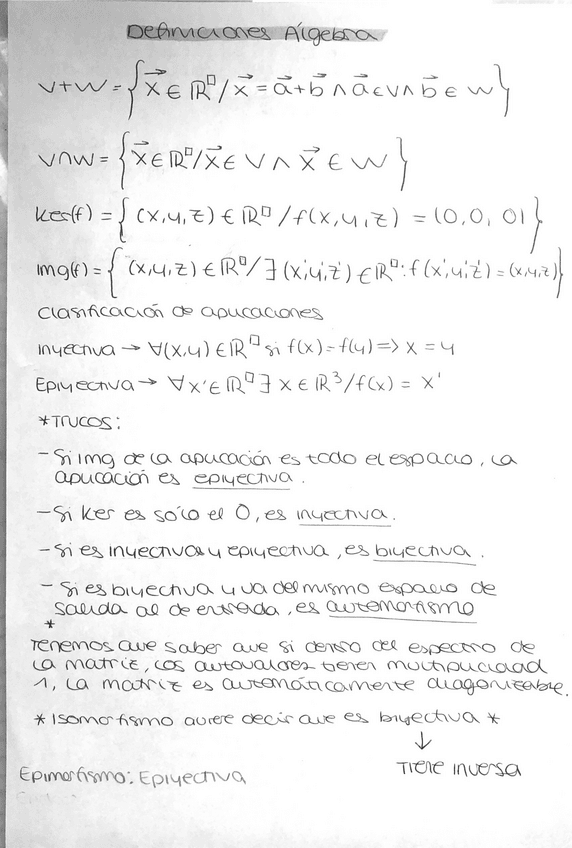 Definiciones Álgebra
V+W = { x⃗ ∈ ℝ□ / x⃗ = a⃗ + b⃗ ∧ a⃗ ∈ V ∧ b⃗ ∈ W }
V∩W = { x⃗ ∈ ℝ□ / x⃗ ∈ V ∧ x⃗ ∈ W }
Ker(f) = { (x,y,z) ∈ ℝ□ / f(x,y,z) = (0,0,0) }
Img(f) = { (x,y,z) ∈ ℝ□ / ∃ (x',y',z') ∈ ℝ□ : f(x',y',z') = (x,y,z) }
Clasificación de aplicaciones
Inyectiva → ∀(x,y) ∈ ℝ□ si f(x) = f(y) => x = y
Epiyectiva → ∀ x' ∈ ℝ□ ∃ x ∈ ℝ³ / f(x) = x'
* Trucos:
- Si Img de la aplicación es todo el espacio, la
aplicación es epiyectiva.
- Si Ker es sólo el 0, es inyectiva.
- Si es inyectiva y epiyectiva, es biyectiva.
- Si es biyectiva y va del mismo espacio de
salida al de entrada, es automorfismo
*
Tenemos que saber que si dentro del espectro de
la matriz, los autovalores tienen multiplicidad
1, la matriz es automáticamente diagonizable.
* Isomorfismo quiere decir que es biyectiva *
↓
Tiene inversa
Epimorfismo: Epiyectiva